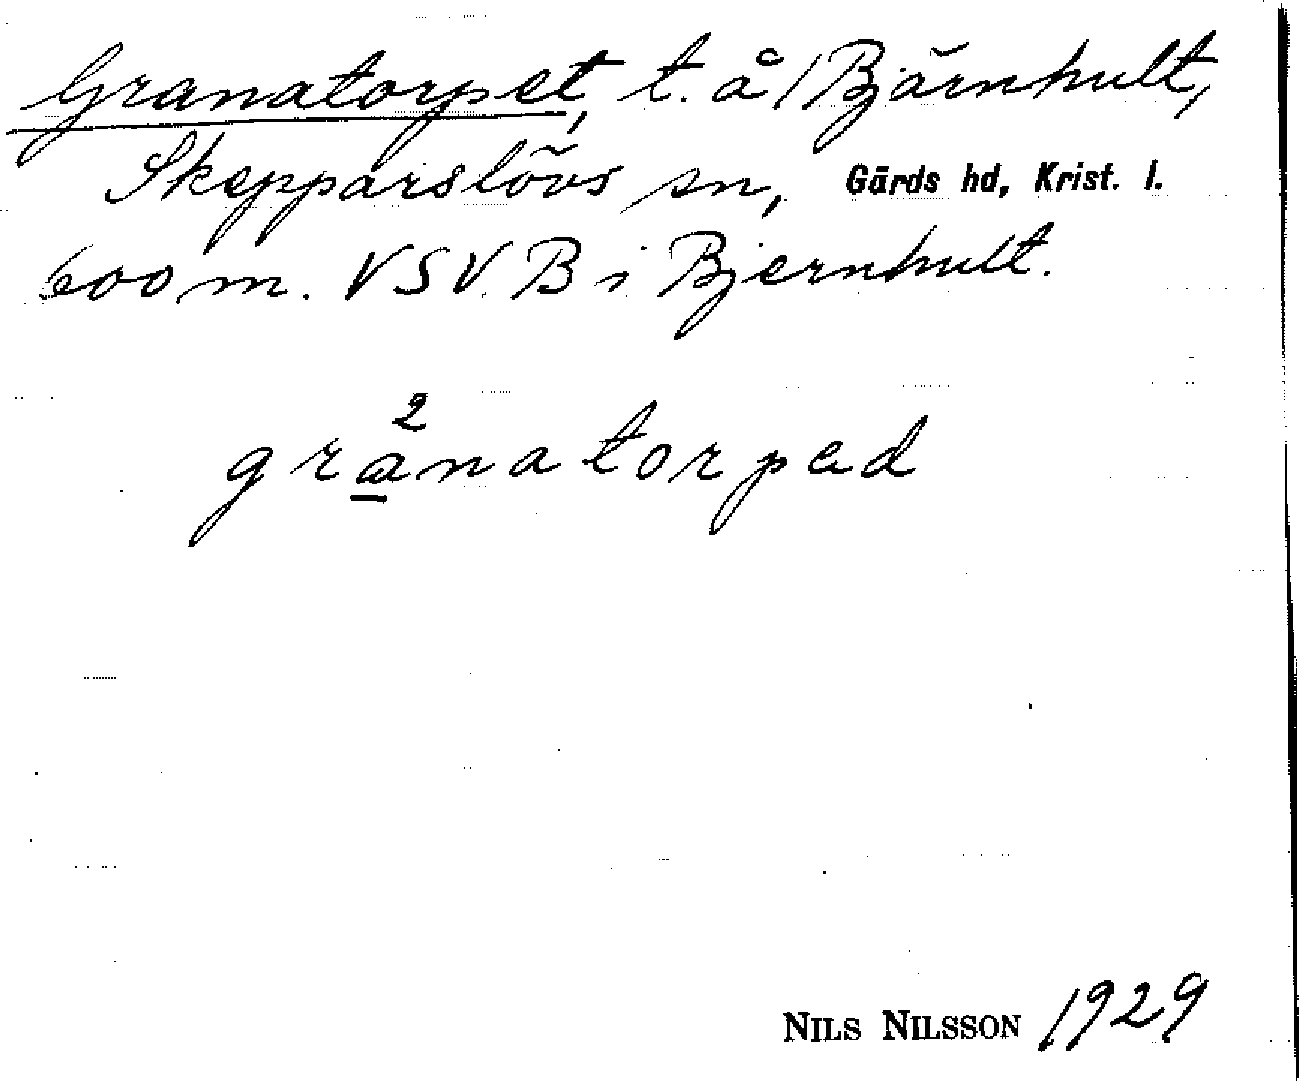 Granatorpet, t. å /Bjärnhult,
Skepparslövs sn, Gärds hd, Krist. l.
600 m. VSV. B i Bjernhult.
2
granatorpad
NILS NILSSON 1929